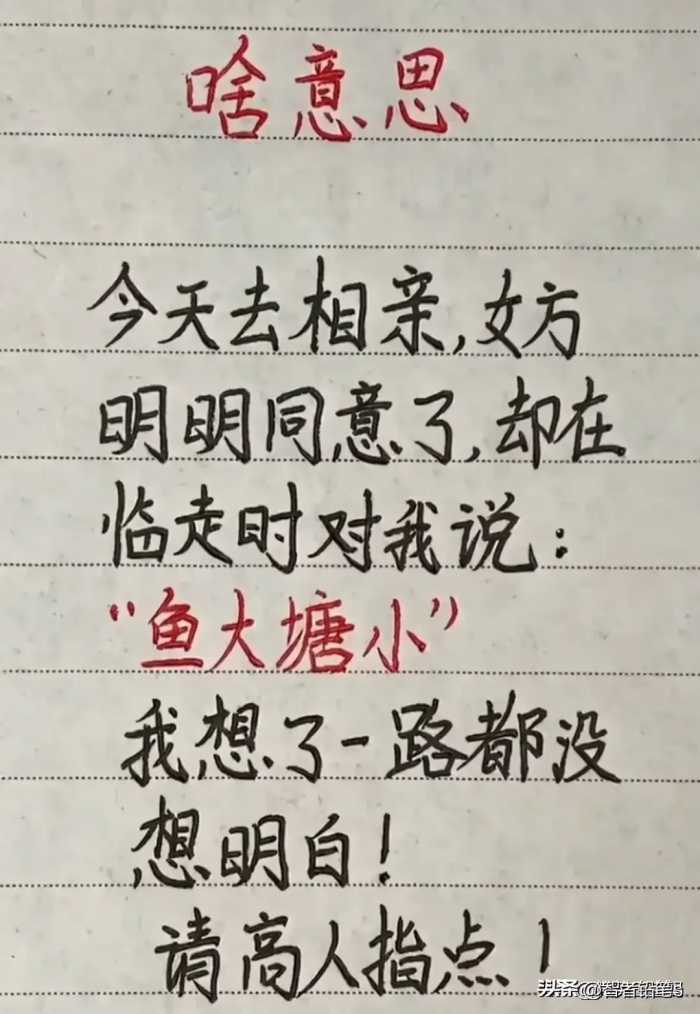 啥意思
今天去相亲,女方
明明同意了,却在
临走时对我说:
“鱼大塘小”
我想了一路都没
想明白!
请高人指点!
头条@智者铅笔